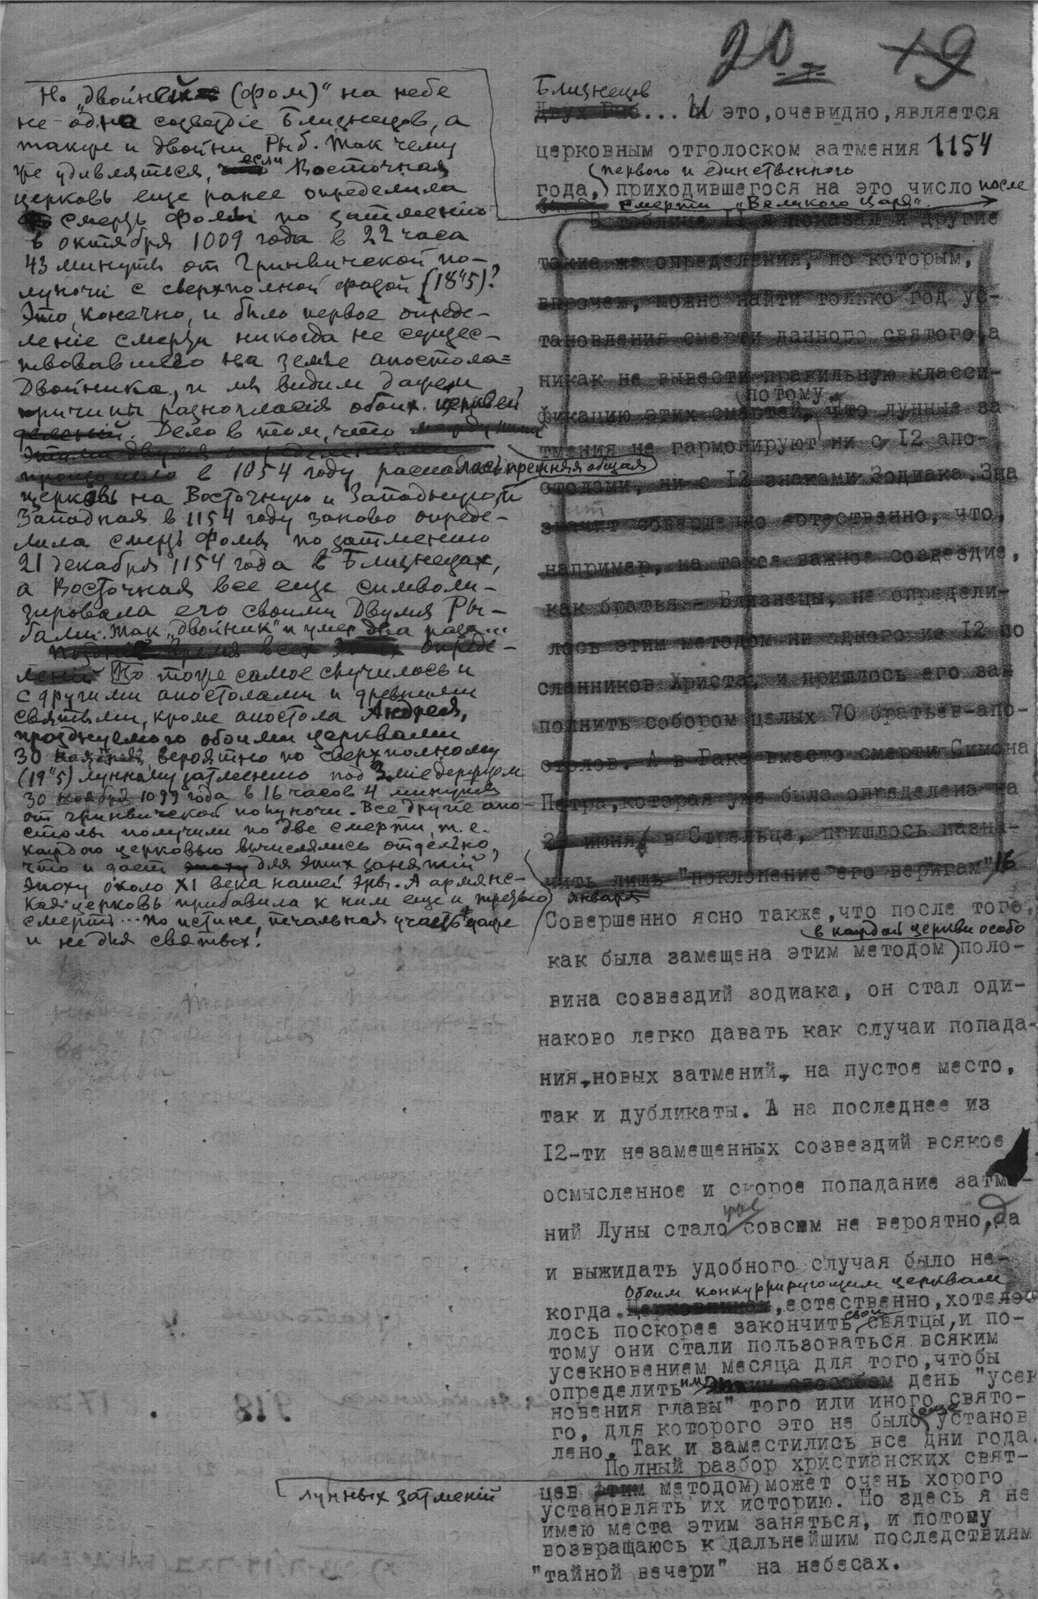 20 19
Но „двойней (фом)" на небе
не одно созвездіе Близнецов, а
также и двойни Рыб. Так чему
же удивляться, если Восточная
церковь еще ранее определила
смерть Фомы по затменію
6 октября 1009 года в 22 часа
43 минуты от Гринвичской по-
луночи с сверхполной фазой (18"5)?
Это, конечно, и было первое опреде-
леніе смерти никогда не сущес-
твовавшего на земле апостола-
Двойника, и мы видим даже и
причины разногласія обоих церквей
Дело в том, что
в 1054 году распалась прежняя общая
церковь на Восточную и Западную, и
Западная в 1154 году заново опреде-
лила смерть Фомы по затменію
21 декабря 1154 года в Близнецах,
а Восточная все еще символи-
зировала его своими Двумя Ры-
бами. Так „двойник" и умер два раза...
Но тоже самое случилось и
с другими апостолами и древними
святыми, кроме апостола Андрея,
празднуемого обоими церквами
30 ноября, вероятно по сверхполному
(19"5) лунному затменію под Змиедержцем
30 ноября 1099 года в 16 часов 4 минуты
от гринвичской полуночи. Все другие апо-
столы получили по две смерти, т. е.
каждою церковью вычислялись отдельно,
что и дает эпоху для этих занятий
эпоху около XI века нашей эры. А армянс-
кая церковь прибавила к ним еще и третью
смерть... По истине, печальная участь даже
и не для святых!
Близнецов
Двух Рыб... И это, очевидно, является
церковным отголоском затмения 1154
первого и единственного
года, приходившегося на это число после
смерти „Великого царя".
В таблице II я показал и другие
такие же определения, по которым,
впрочем, можно найти только год ус-
тановления смерти данного святого, а
никак не вывести правильную класси-
потому
фикацию этих смертей, что лунные за
тмения не гармонируют ни с 12 апо-
столами, ни с 12 знаками Зодиака. Зна
значит совершенно естественно, что,
например, на такое важное созвездие,
как братья - Близнецы, не определи-
лось этим методом ни одного из 12 по
сланников Христа, и пришлось его за-
полнить собором целых 70 братьев-апо-
столов. А в Раке вместо смерти Симона
Петра, которая уже была определена на
29 июня, в Стрельце, пришлось назна-
чить лишь "поклонение его веригам" 16
января
Совершенно ясно также, что после того,
в каждой церкви особо
как была замещена этим методом поло-
вина созвездий зодиака, он стал оди-
наково легко давать как случаи попада-
ния новых затмений на пустое место,
так и дубликаты. А на последнее из
12-ти незамещенных созвездий всякое
осмысленное и скорое попадание затме-
ний Луны стало уже совсем не вероятно, да
и выжидать удобного случая было не-
Обеим конкуррирующим церквам
когда. , естественно, хотело-
свои
лось поскорее закончить святцы, и по-
тому они стали пользоваться всяким
усекновением месяца для того, чтобы
определить им день "усек
новения главы" того или иного свято-
еще
го, для которого это не было установ
лено. Так и заместились все дни года.
Полный разбор христианских свят-
цев этим методом может очень хорого
лунных затменій
установлять их историю. Но здесь я не
имею места этим заняться, и потому
возвращаюсь к дальнейшим последствиям
"тайной вечери" на небесах.